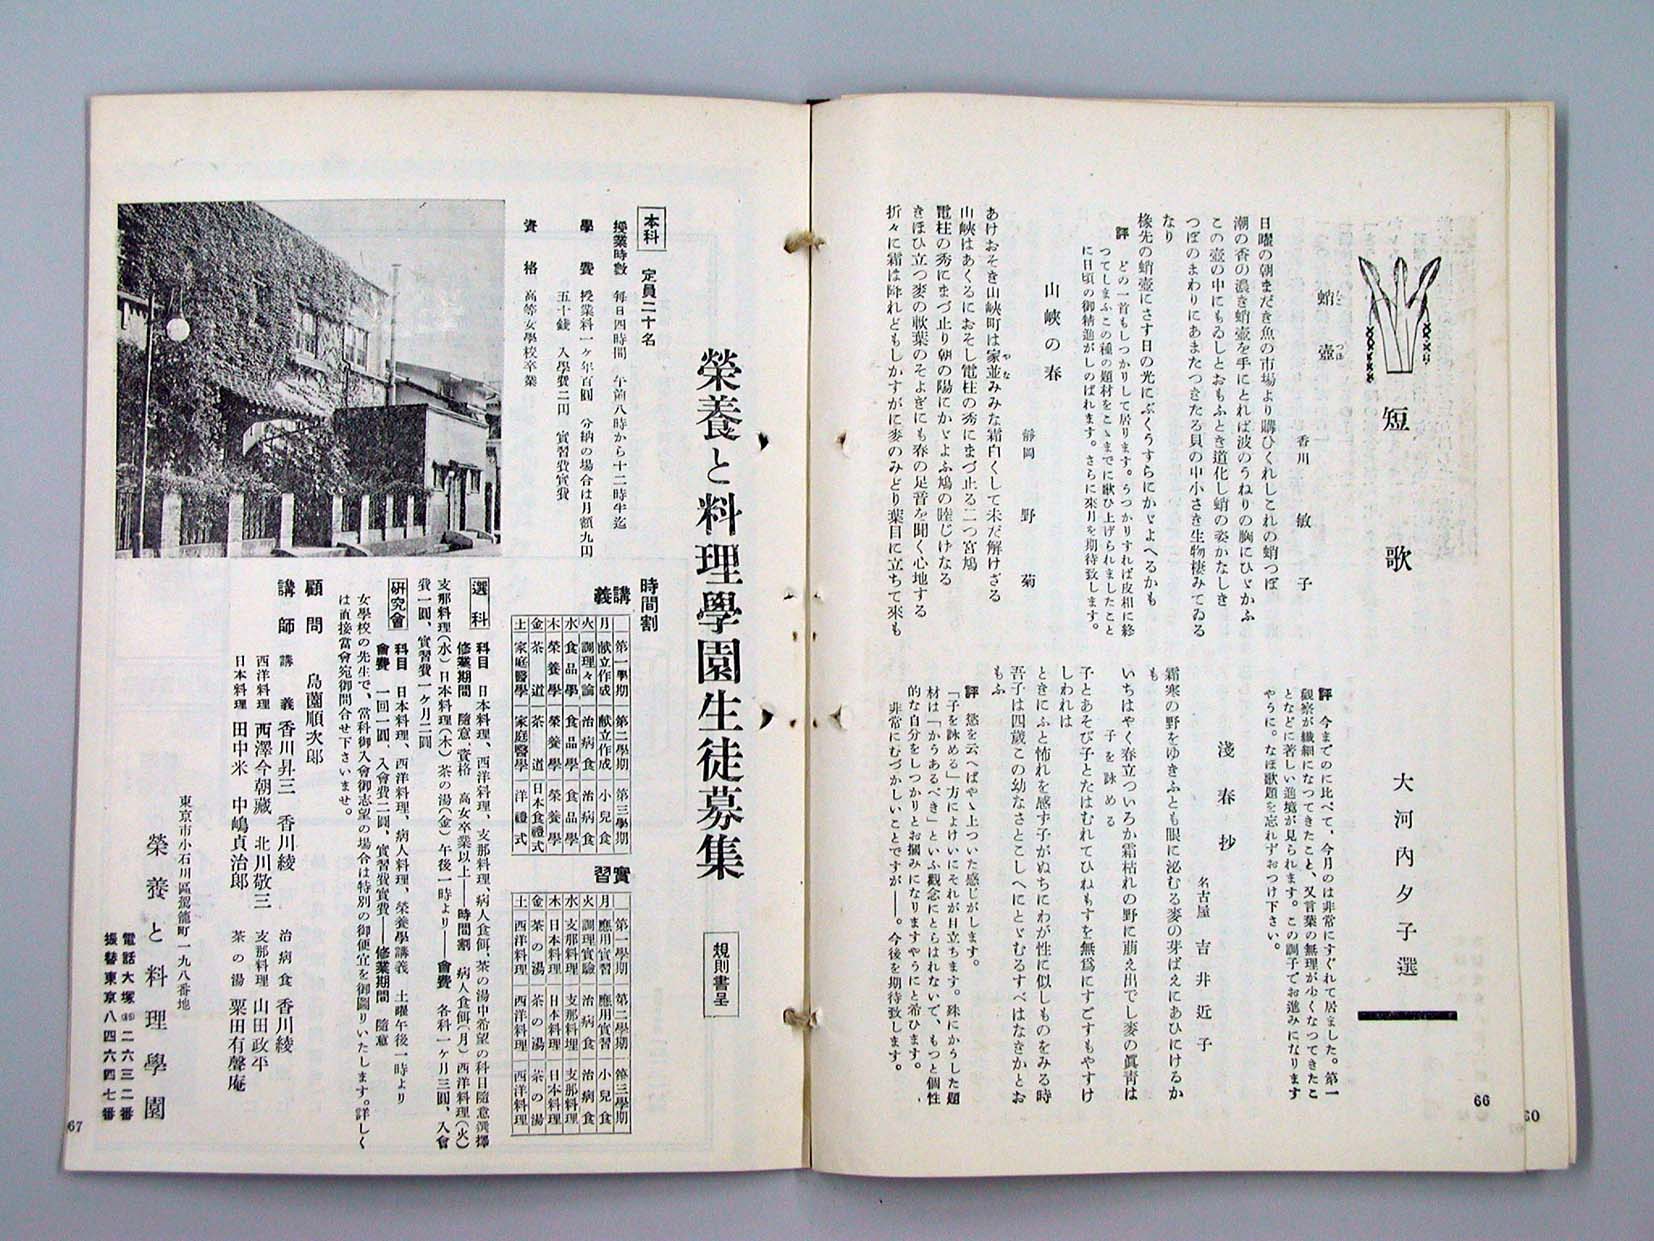 短歌
大河内夕子選
蛸壺
たこつぼ
香川 敏子
日曜の朝まだき魚の市場より購ひくれしこれの蛸つぼ
潮の香の濃き蛸壺を手にとれば波のうねりの胸にひゞかふ
この壺の中にもるしとおもふとき道化し蛸の姿かなしき
つぼのまわりにあまたつきたる貝の中小さき生物棲みてゐる
なり
椽先の蛸壺にさす日の光にぶくうすらにかゞよへるかも
評 どの一首もしつかりして居ります。うつかりすれば皮相に終
つてしまふこの種の題材をこゝまでに歌ひ上げられましたこと
に日頃の御精進がしのばれます。さらに來月を期待致します。
山峡の春
靜岡 野菊
あけおそき山峡町は家並みみな霜白くして未だ解けざる
やな
山峡はあくるにおそし電柱の秀にまづ止る二つ宮鳩
電柱の秀にまづ止り朝の陽にかゞよふ鳩の睦じげなる
きほひ立つ麥の軟葉のそよぎにも春の足音を聞く心地する
折々に霜は降れどもしかすがに麥のみどり葉目に立ちて來も
評 今までのに比べて、今月のは非常にすぐれて居ました。第一
觀察が纎細になつてきたこと、又言葉の無理が少くなつてきたこ
となどに著しい進境が見られます。この調子でお進みになります
やうに。なほ歌題を忘れずおつけ下さい。
淺春抄
名古屋 吉井近子
霜寒の野をゆきふとも眼に泌むる麥の芽ばえにあひにけるか
も
いちはやく春立つついろか霜枯れの野に萠え出でし麥の眞靑は
子を詠める
子とあそび子とたはむれてひねもすを無爲にすごすもやすけ
しわれは
ときにふと怖れを感す子がぬちにわが性に似しものをみる時
吾子は四歳この幼なさとこしへにとゞむるすべはなきかとお
もふ
評 慾を云へばやゝ上ついた感じがします。
「子を詠める」方によけいにそれが目立ちます。殊にかうした題
材は「かうあるべき」といふ觀念にとらはれないで、もつと個性
的な自分をしつかりとお摑みになりますやうにと希ひます。
非常にむづかしいことですが――。今後を期待致します。
66
60
榮養と料理學園生徒募集
規則書呈
本科 定員二十名
授業時數 每日四時間 午前八時から十二時半迄
學費 授業料一ヶ年百圓 分納の場合は月額九円
五十錢 入學費二円 實習費實費
資格 高等女學校卒業
時間割
講義
第一學期 第二學期 第三學期
月 献立作成 献立作成 小兒食
火 調理々論 治病食 治病食
水 食品學 食品學 食品學
木 榮養學 榮養學 榮養學
金 茶道 茶道 日本食禮式
土 家庭醫學 家庭醫學 洋禮式
實習
第一學期 第二學期 第三學期
月 應用實習 應用實習 小兒食
火 調理實驗 治病食 治病食
水 支那料理 支那料理 支那料理
木 日本料理 日本料理 日本料理
金 茶の湯 茶の湯 茶の湯
土 西洋料理 西洋料理 西洋料理
選科 科目 日本料理、西洋料理、支那料理、病人食餌、茶の湯中希望の科目隨意選擇
修業期間 隨意、資格 高女卒業以上――時間割 病人食餌(月)西洋料理(火)
支那料理(水)日本料理(木)茶の湯(金)午後一時より――會費 各科一ヶ月三圓、入會
費一圓、實習費一ヶ月二圓
硏究會 科目 日本料理、西洋料理、病人料理、榮養學講義 土曜午後一時より
會費 一回一圓、入會費二圓、實習費實費――修業期間 隨意
女學校の先生で、當科御入會御志望の場合は特別の御便宜を御圖りいたします。詳しく
は直接當會宛御問合せ下さいませ。
顧問 島薗順次郎
講師 講義 香川昇三 香川綾 治病食 香川綾
西洋料理 西澤今朝藏 北川敬三 支那料理 山田政平
日本料理 田中米 中嶋貞治郎 茶の湯 粟田有聲庵
東京市小石川區駕籠町一九八番地
榮養と料理學園
電話大塚(86)二六三二番
振替東京八四六四七番
67